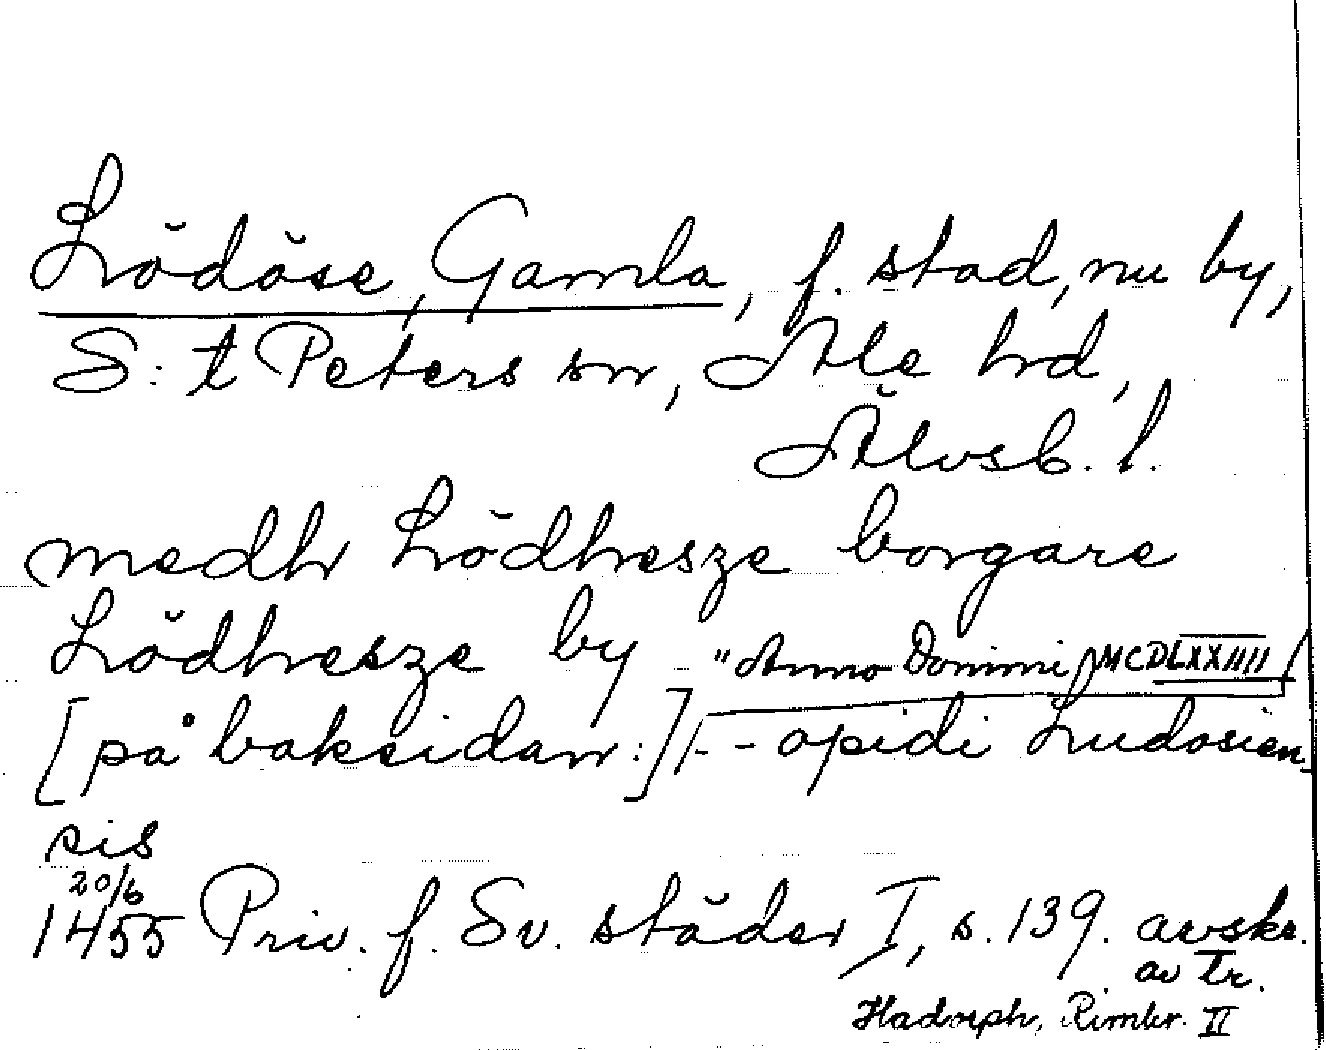 Lödöse, Gamla, f. stad, nu by,
S:t Peters sn, Ale hd,
Älvsb. l.
medh Lödhesze borgare
Lödhesze by "Anno Domini MCDLXXIIII
[på baksidan:] -- opidi Ludosien
sis
20/6
1455 Priv. f. Sv. städer I, s. 139. avskr.
av tr.
Hadorph, Rimkr. II